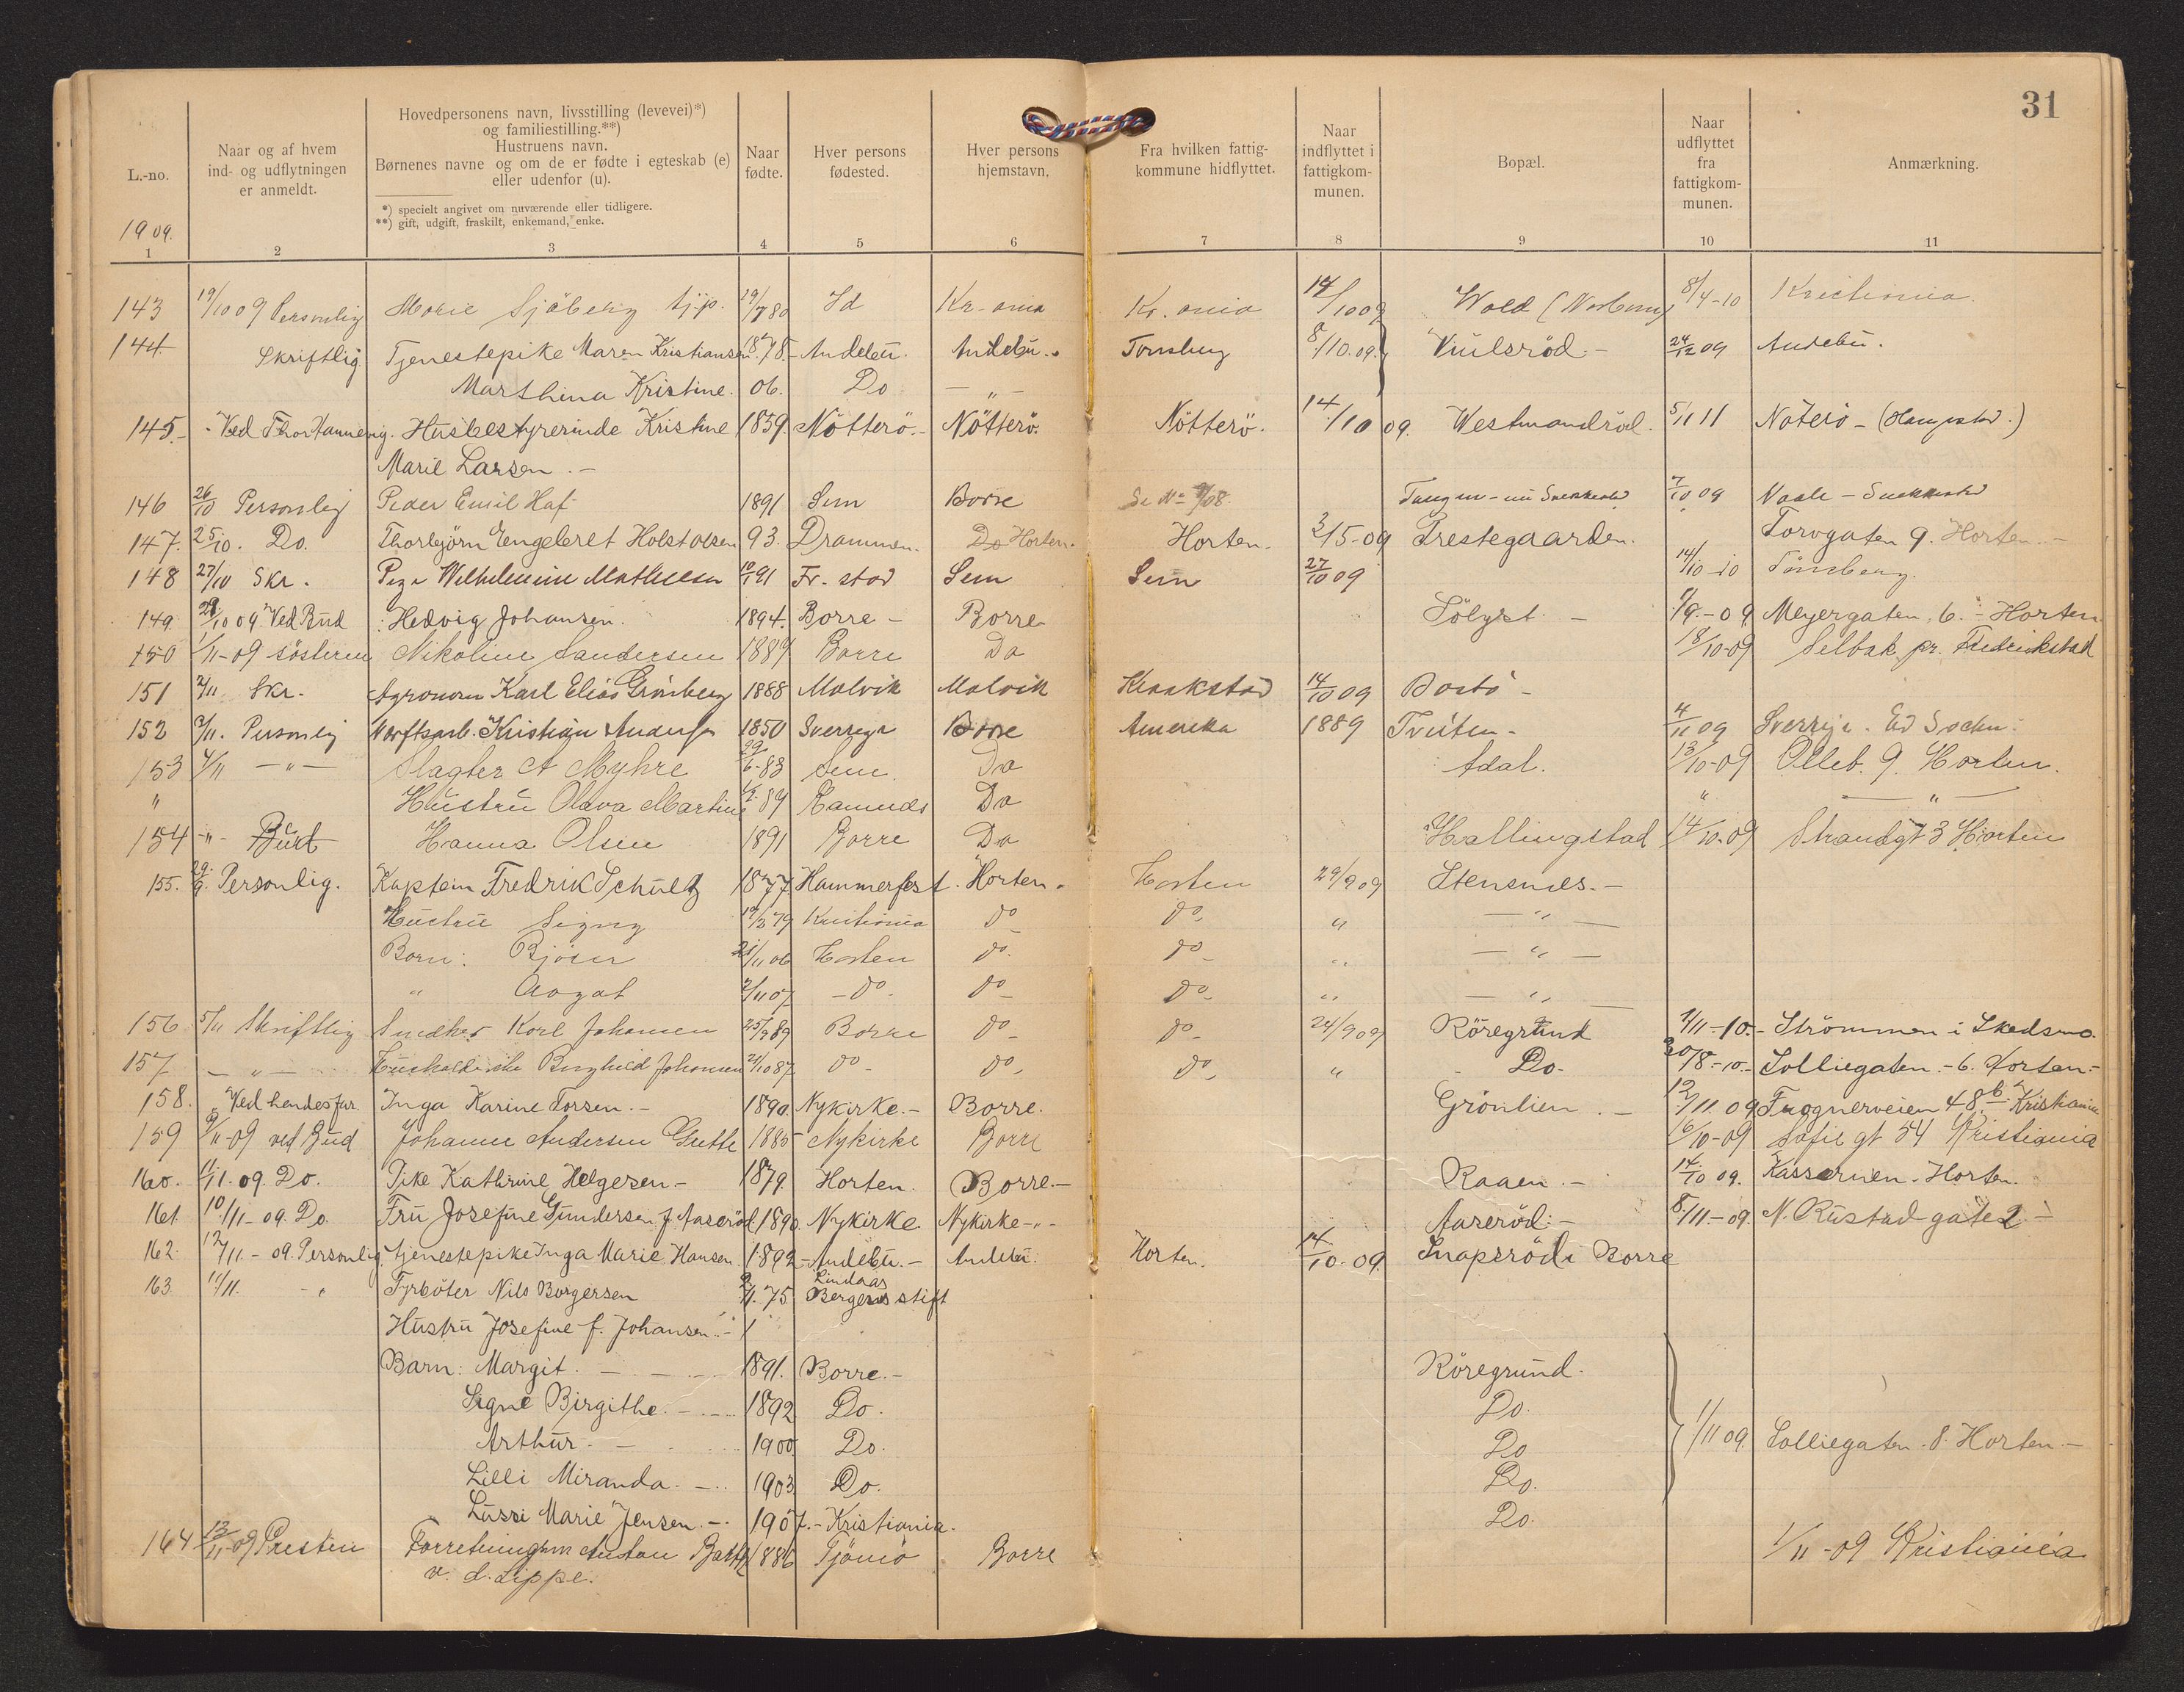 31
L.-no.
Naar og af hvem ind- og udflytningen er anmeldt.
Hovedpersonens navn, livsstilling (levevei)*) og familiestilling.**)
Hustruens navn.
Børnenes navne og om de er fødte i egteskab (e) eller udenfor (u).
*) specielt angivet om nuværende eller tidligere.
**) gift, udgift, fraskilt, enkemand, enke.
Naar fødte.
Hver persons fødested.
Hver persons hjemstavn.
Fra hvilken fattigkommune hidflyttet.
Naar indflyttet i fattigkommunen.
Bopæl.
Naar udflyttet fra fattigkommunen.
Anmærkning.
1909.
1 2 3 4 5 6 7 8 9 10 11
143 19/10 09 Personlig Marie Sjöberg tj.p. 19/7 80 Id Kr-ania Kr.ania 14/10 09 Wold 8/4-10 Kristiania
144 Skriftlig Tjenestepike Maren Kristiansen 1878 Andebu. Andebu. Tønsberg 8/10.09. 24/12 09 Andebu.
Marthina Kristine. 06. Do — " —
145.- Ved Thor Hannevig. Husbestyrerinde Kristine 1859. Nötterö.- Nötterö. Nötterö. 14/10 09. Westmandröd. 5/11 11 Nöterö -
Marie Larsen.-
146 26/10 Personlig Peder Emil Haf 1891 Sem Borre 7/10 09
147. 25/10. Do. Thorbjörn Engebret Holst Olsen 93. Drammen. Do Horten. Horten. 3/5-09 Prestegaarden. Torvgaten 9. Horten.-
148 27/10 Skr. Mathilsen 91 Fr.stad Sem Sem 27/10 09 14/10-10 Tönsberg.
149. 29/10 09 Ved Bud Hedvig Johansen. 1894. Borre- Borre Sölyst.- 1/9.-09 Meyergaten, 6.- Horten
150 1/11-09 söstren Nikoline Sandersen 1889 Borre Do 18/10-09 Selbak pr. Fredrikstad
151 2/11 Skr. Agronom Karl Elias Grönberg 1888 Malvik Malvik Kraakstad 14/10 09 Bastö-
152 3/11. Personlig Værftsarb. Kristian Andersen 1850 Sverrige Borre Amerika 1889 Tveiten- 4/11 09 Sverrige.
153 4/11 — " — Slagter A Myhre 29/6-83 Sem Do Adal. 13/10-09 Olleb. 9. Horten.
" Hustru Olava Martine 84 Ramnes Do " — " —
154 - " - Bud Hanna Olsen 1891 Borre Do Hallingstad 14/10-09 Strandgt 3 Horten
155. 29/9. Personlig. Kaptein Fredrik Schultz 1877 Hammerfest. Horten. Horten 29/9 09 Stensnes.-
Hustru Signy 79 Kristiania do do " — " —
Børn: Bjørn 21/11 06 Horten do. do — " —
" 2/11 07 - do. do do " — " —
156 5/11 Skriftlig Snedker Karl Johansen 25/9 89 Borre do do 24/9 09 Röregrund 1/11-10.- Strömmen i Skedsmo.
157 — " — Borghild Johansen 21/10 87 do do do " Do. 30/8-10.- Solliegaten.-6. Horten.-
158. Ved hendes far. Inga Karine Torsen.- 1890. Nykirke.- Borre. Grönlien.- 12/11. 09 Frognerveien 48 b. Kristiania
159 9/11-09 ved Bud Johanne Andersen 1885 Nykirke Borre 16/10-09 Sofie gt 54 Kristiania
160. 11/11.09. Do. Pike Kathrine Helgesen- 1879. Horten. Borre.- Raaen.- 14/10 09. Kassernen. Horten.
161 10/11-09. Do. Fru Josefine Gundersen f. Aaseröd. 1890. Nykirke. Nykirke-"- Aareröd:- 8/11-09. N. Rustad gate 2.-
162. 12/11.-09. Personlig Tjenestepike Inga Marie Hansen. 1892- Andebu.- Andebu. Horten. 14/10-09. Snapsröd i Borre
163. 11/11. - " Fyrböter Nils Borgersen 2/11.75 Lindaas Bergens stift
Hustru Josefine f. Johansen.-
Barn: Margit.- 1891. Borre.- Röregrund.
Signe Birgithe.- 1892 Do. Do.
Arthur.- 1900 Do. Do 1/11 09. Solliegaten.8. Horten-
Lilli Miranda.- 1903 Do. Do.
Lussi Marie Jensen.-. 1907.- Kristiania. Do.
164 13/11-09 Presten Forretningsm Anstan 1886 Tjömö Borre 1/11-09 Kristiania
v. d. Lippe.